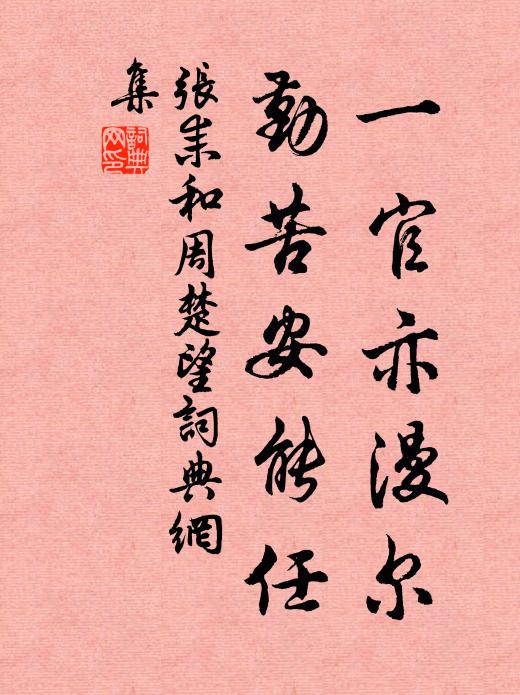 一官亦漫尔
勤苦安能任
張耒和周楚望詞典網
集
詞典網印